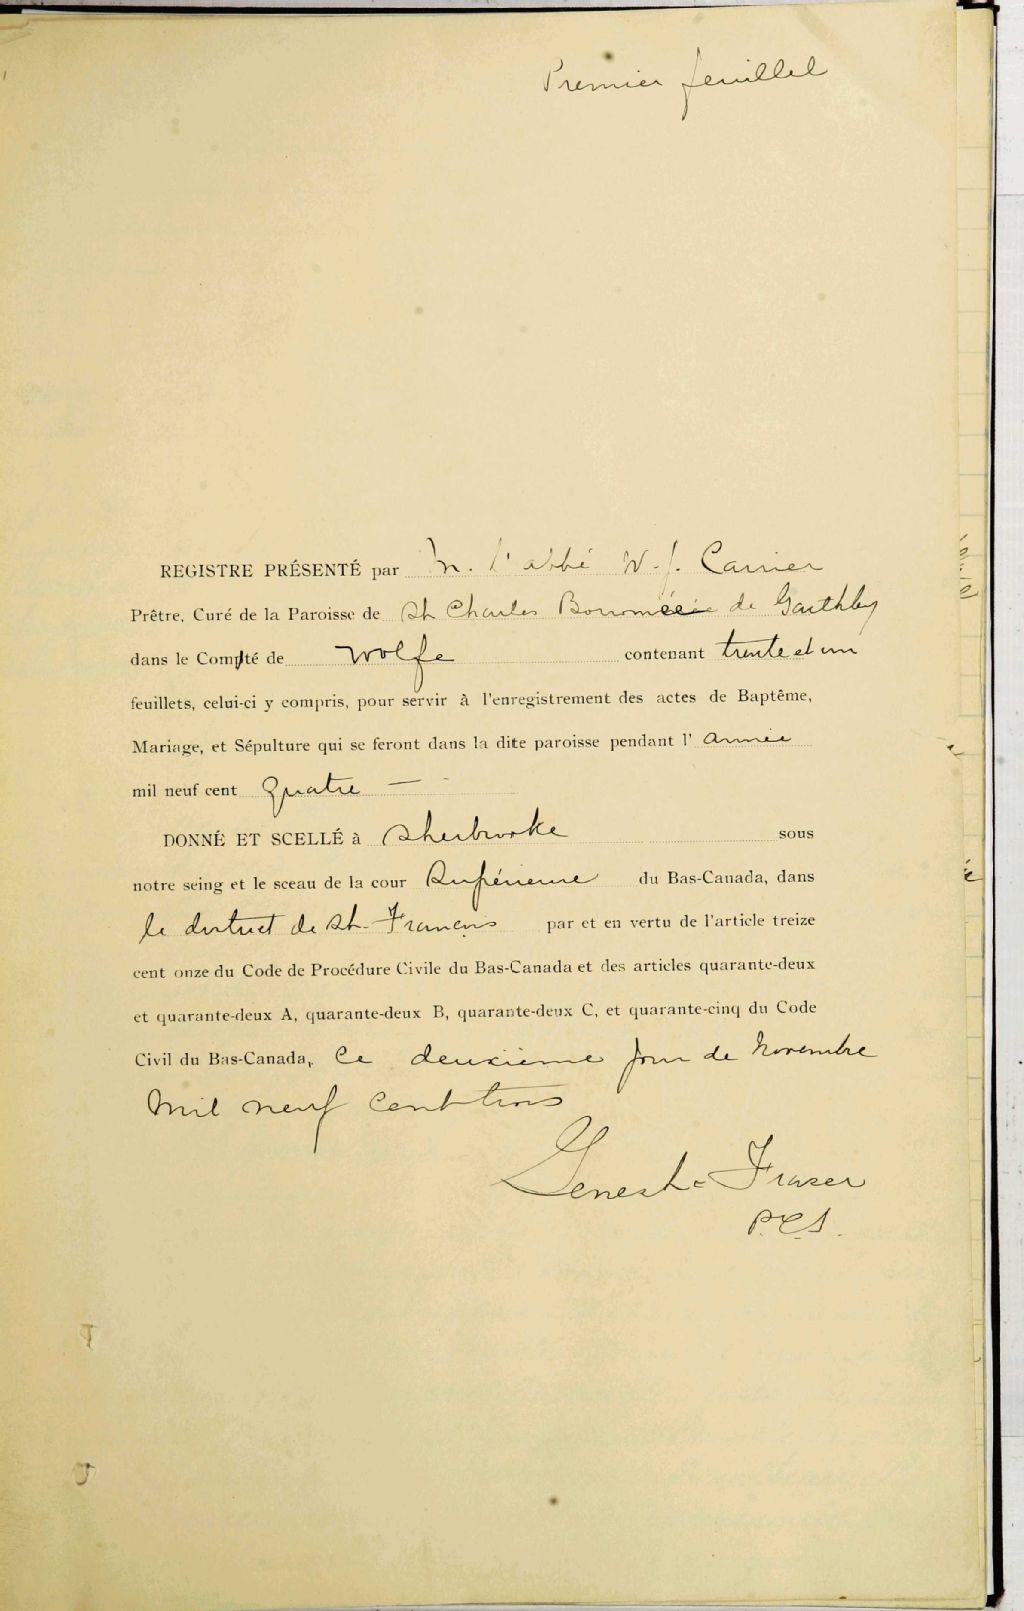 Premier feuillet
REGISTRE PRÉSENTÉ par M. l'abbé W. J. Carrier
Prêtre, Curé de la Paroisse de St Charles Borromée de Garthby
dans le Comté de Wolfe contenant trente et un
feuillets, celui-ci y compris, pour servir à l'enregistrement des actes de Baptême,
Mariage, et Sépulture qui se feront dans la dite paroisse pendant l' année
mil neuf cent quatre —
DONNÉ ET SCELLÉ à Sherbrooke sous
notre seing et le sceau de la cour Supérieure du Bas-Canada, dans
le district de St-François par et en vertu de l'article treize
cent onze du Code de Procédure Civile du Bas-Canada et des articles quarante-deux
et quarante-deux A, quarante-deux B, quarante-deux C, et quarante-cinq du Code
Civil du Bas-Canada, ce deuxième jour de Novembre
mil neuf cent trois
Genest & Fraser
P.C.S.